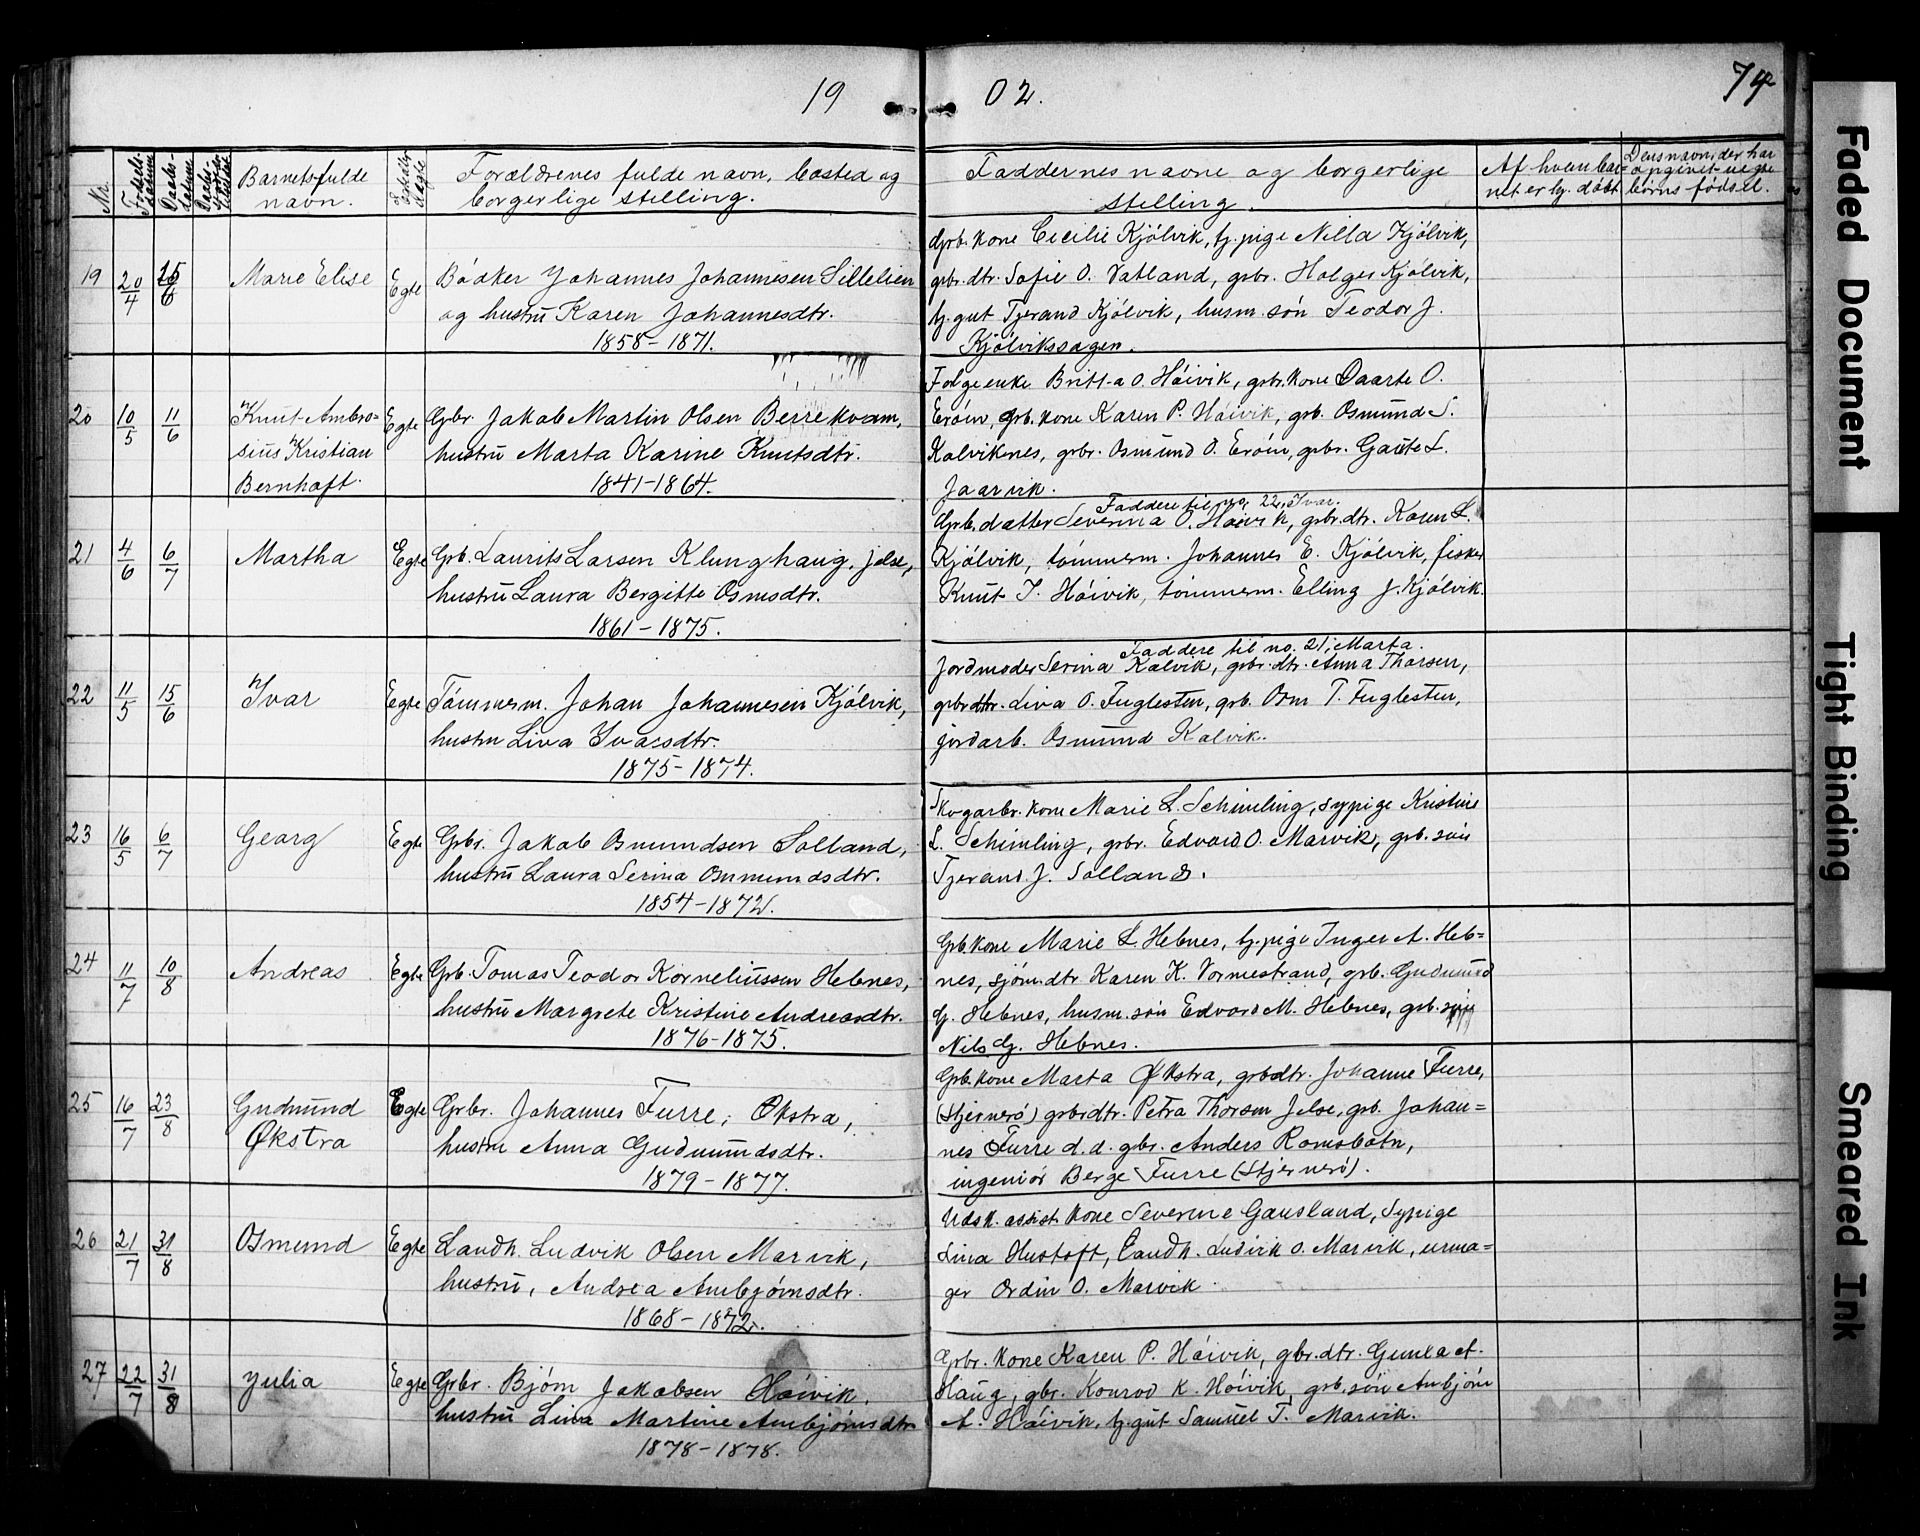 19 02. 74
Nr.
Fødsels-
datum
Daabs-
datum
Barnets fulde
navn.
Forældrenes fulde navn, bosted og
borgerlige stilling.
Faddernes navne og borgerlige
stilling.
Af hvem bar-
net er hj. døbt
Dens navn, der har
opgivet uegte
børns fødsel.
19 20/4 15/6 Marie Elise Egte
Bødker Johannes Johannesen Sillelien
og hustru Karen Johannesdtr.
1858-1871.
Grb. kone Cecilie Kjölvik, tj. pige Nilla Kjölvik,
grb. dtr. Sofie O. Vatland, grbr. Holger Kjölvik,
tj. gut Tjerand Kjölvik, husm. sön Teodor J.
Kjölviksvagen.
20 10/5 11/6 Knut Ambro-
sius Kristian
Bernhoft.
Egte Gbr. Jakob Martin Olsen Berrekvam,
hustru Marta Karine Knutsdtr.
1841-1864.
Folgeenke Britta O. Höivik, grbr. kone Daarte O.
Eröen, grb. kone Karen P. Höivik, grb. Osmund S.
Kalviknes, grbr. Osmund O. Eröen, grbr. Gaute L.
Jaarvik.
Faddere til no. 22, Ivar.
21 4/6 6/7 Martha Egte
Grb. Laurits Larsen Klunghaug, Jelse,
hustru Laura Bergitte Osmsdtr.
1861-1875.
Grb. datter Severina O. Höivik, grbr. dtr. Karen L.
Kjölvik, tömmerm. Johannes E. Kjölvik, fisker
Knut J. Höivik, tömmerm. Elling J. Kjölvik.
Faddere til no. 21, Marta.
22 11/5 15/6 Ivar Egte
Tömmerm. Johan Johannesen Kjölvik,
hustru Liva Ivarsdtr.
1875-1874.
Jordmoder Serina Kalvik, grbr. dtr. Anna Thorsen,
grbrdtr. Liva O. Fuglesten, grb. Osm T. Fuglesten,
jordarb. Osmund Kalvik.
23 16/5 6/7 Georg Egte
Grbr. Jakob Osmundsen Solland,
hustru Laura Serina Osmundsdtr.
1854-1872.
Skogarbr. kone Marie L. Schimling, sypige Kristine
L. Schimling, grbr. Edvard O. Marvik, grb. sön
Tjerand J. Solland.
24 11/7 10/8 Andreas Egte
Grb. Tomas Teodor Korneliussen Hebnes,
hustru Margrete Kristine Andreasdtr.
1876-1875.
Grb. kone Marie L. Hebnes, tj. pige Inger A. Heb-
nes, sjöm. dtr. Karen K. Vormestrand, grb. Gudmund
G. Hebnes, husm. sön Edvard M. Hebnes, grb. sön
Nils G. Hebnes.
25 16/7 23/8 Gudmund
Økstra
Egte Grbr. Johannes Furre, Økstra,
hustru Anna Gudmundsdtr.
1879-1877.
Grb. kone Marta Økstra, grbdtr. Johanne Furre,
(Stjernerö) grbrdtr. Petra Thorsen Jelse, grb. Johan-
nes Furre d.d. gbr. Anders Ramsbotn,
ingeniör Berge Furre (Stjernerö).
26 21/7 31/8 Osmund Egte
Landh. Ludvik Olsen Marvik,
hustru, Andrea Ambjörnsdtr.
1868-1872.
Udsk. assist. kone Severine Gausland, Sypige
Lina Hustoft, Landh. Ludvik O. Marvik, urma-
ger Ordin O. Marvik.
27 22/7 31/8 Julia Egte
Grbr. Bjørn Jakobsen Höivik,
hustru Lina Martine Ambjörnsdtr.
1878-1878.
Grbr. kone Karen P. Höivik, gbr. dtr. Gunla A.
Haug, gbr. Konrad K. Höivik, grb. sön Ambjörn
A. Höivik, tj. gut Samuel T. Marvik.
Faded Document
Tight Binding
Smeared Ink